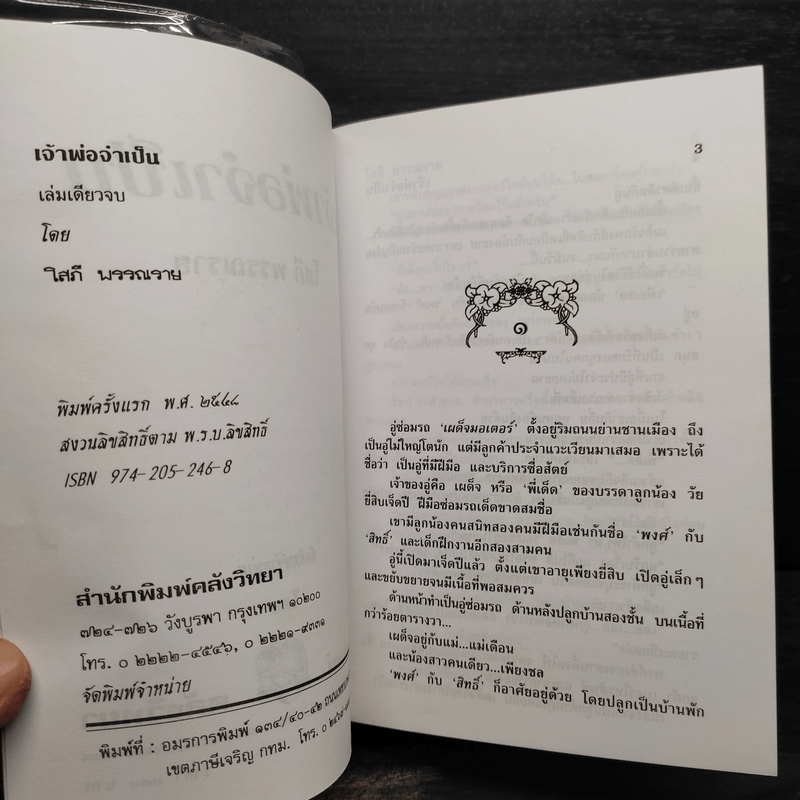 เจ้าพ่อจำเป็น
เล่มเดียวจบ
โดย
โสภี พรรณราย
พิมพ์ครั้งแรก พ.ศ. ๒๕๔๘
สงวนลิขสิทธิ์ตาม พ.ร.บ.ลิขสิทธิ์
ISBN 974-205-246-8
สำนักพิมพ์คลังวิทยา
๗๒๔-๗๒๖ วังบูรพา กรุงเทพฯ ๑๐๒๐๐
โทร. ๐ ๒๒๒๒-๔๕๔๖, ๐ ๒๒๒๑-๙๓๓๑
จัดพิมพ์จำหน่าย
พิมพ์ที่ : อมรการพิมพ์ ๑๓๔/๔๐-๔๒
เขตภาษีเจริญ กทม. โทร. ๐
3
๑
อู่ซ่อมรถ 'เผด็จมอเตอร์' ตั้งอยู่ริมถนนย่านชานเมือง ถึง
เป็นอู่ไม่ใหญ่โตนัก แต่มีลูกค้าประจำแวะเวียนมาเสมอ เพราะได้
ชื่อว่า เป็นอู่ที่มีฝีมือ และบริการซื่อสัตย์
เจ้าของอู่คือ เผด็จ หรือ 'พี่เด็ด' ของบรรดาลูกน้อง วัย
ยี่สิบเจ็ดปี ฝีมือซ่อมรถเด็ดขาดสมชื่อ
เขามีลูกน้องคนสนิทสองคนมีฝีมือเช่นกันชื่อ 'พงศ์' กับ
'สิทธิ์' และเด็กฝึกงานอีกสองสามคน
อู่นี้เปิดมาเจ็ดปีแล้ว ตั้งแต่เขาอายุเพียงยี่สิบ เปิดอู่เล็กๆ
และขยับขยายจนมีเนื้อที่พอสมควร
ด้านหน้าทำเป็นอู่ซ่อมรถ ด้านหลังปลูกบ้านสองชั้น บนเนื้อที่
กว่าร้อยตารางวา...
เผด็จอยู่กับแม่...แม่เดือน
และน้องสาวคนเดียว...เพียงชล
'พงศ์' กับ 'สิทธิ์' ก็อาศัยอยู่ด้วย โดยปลูกเป็นบ้านพัก